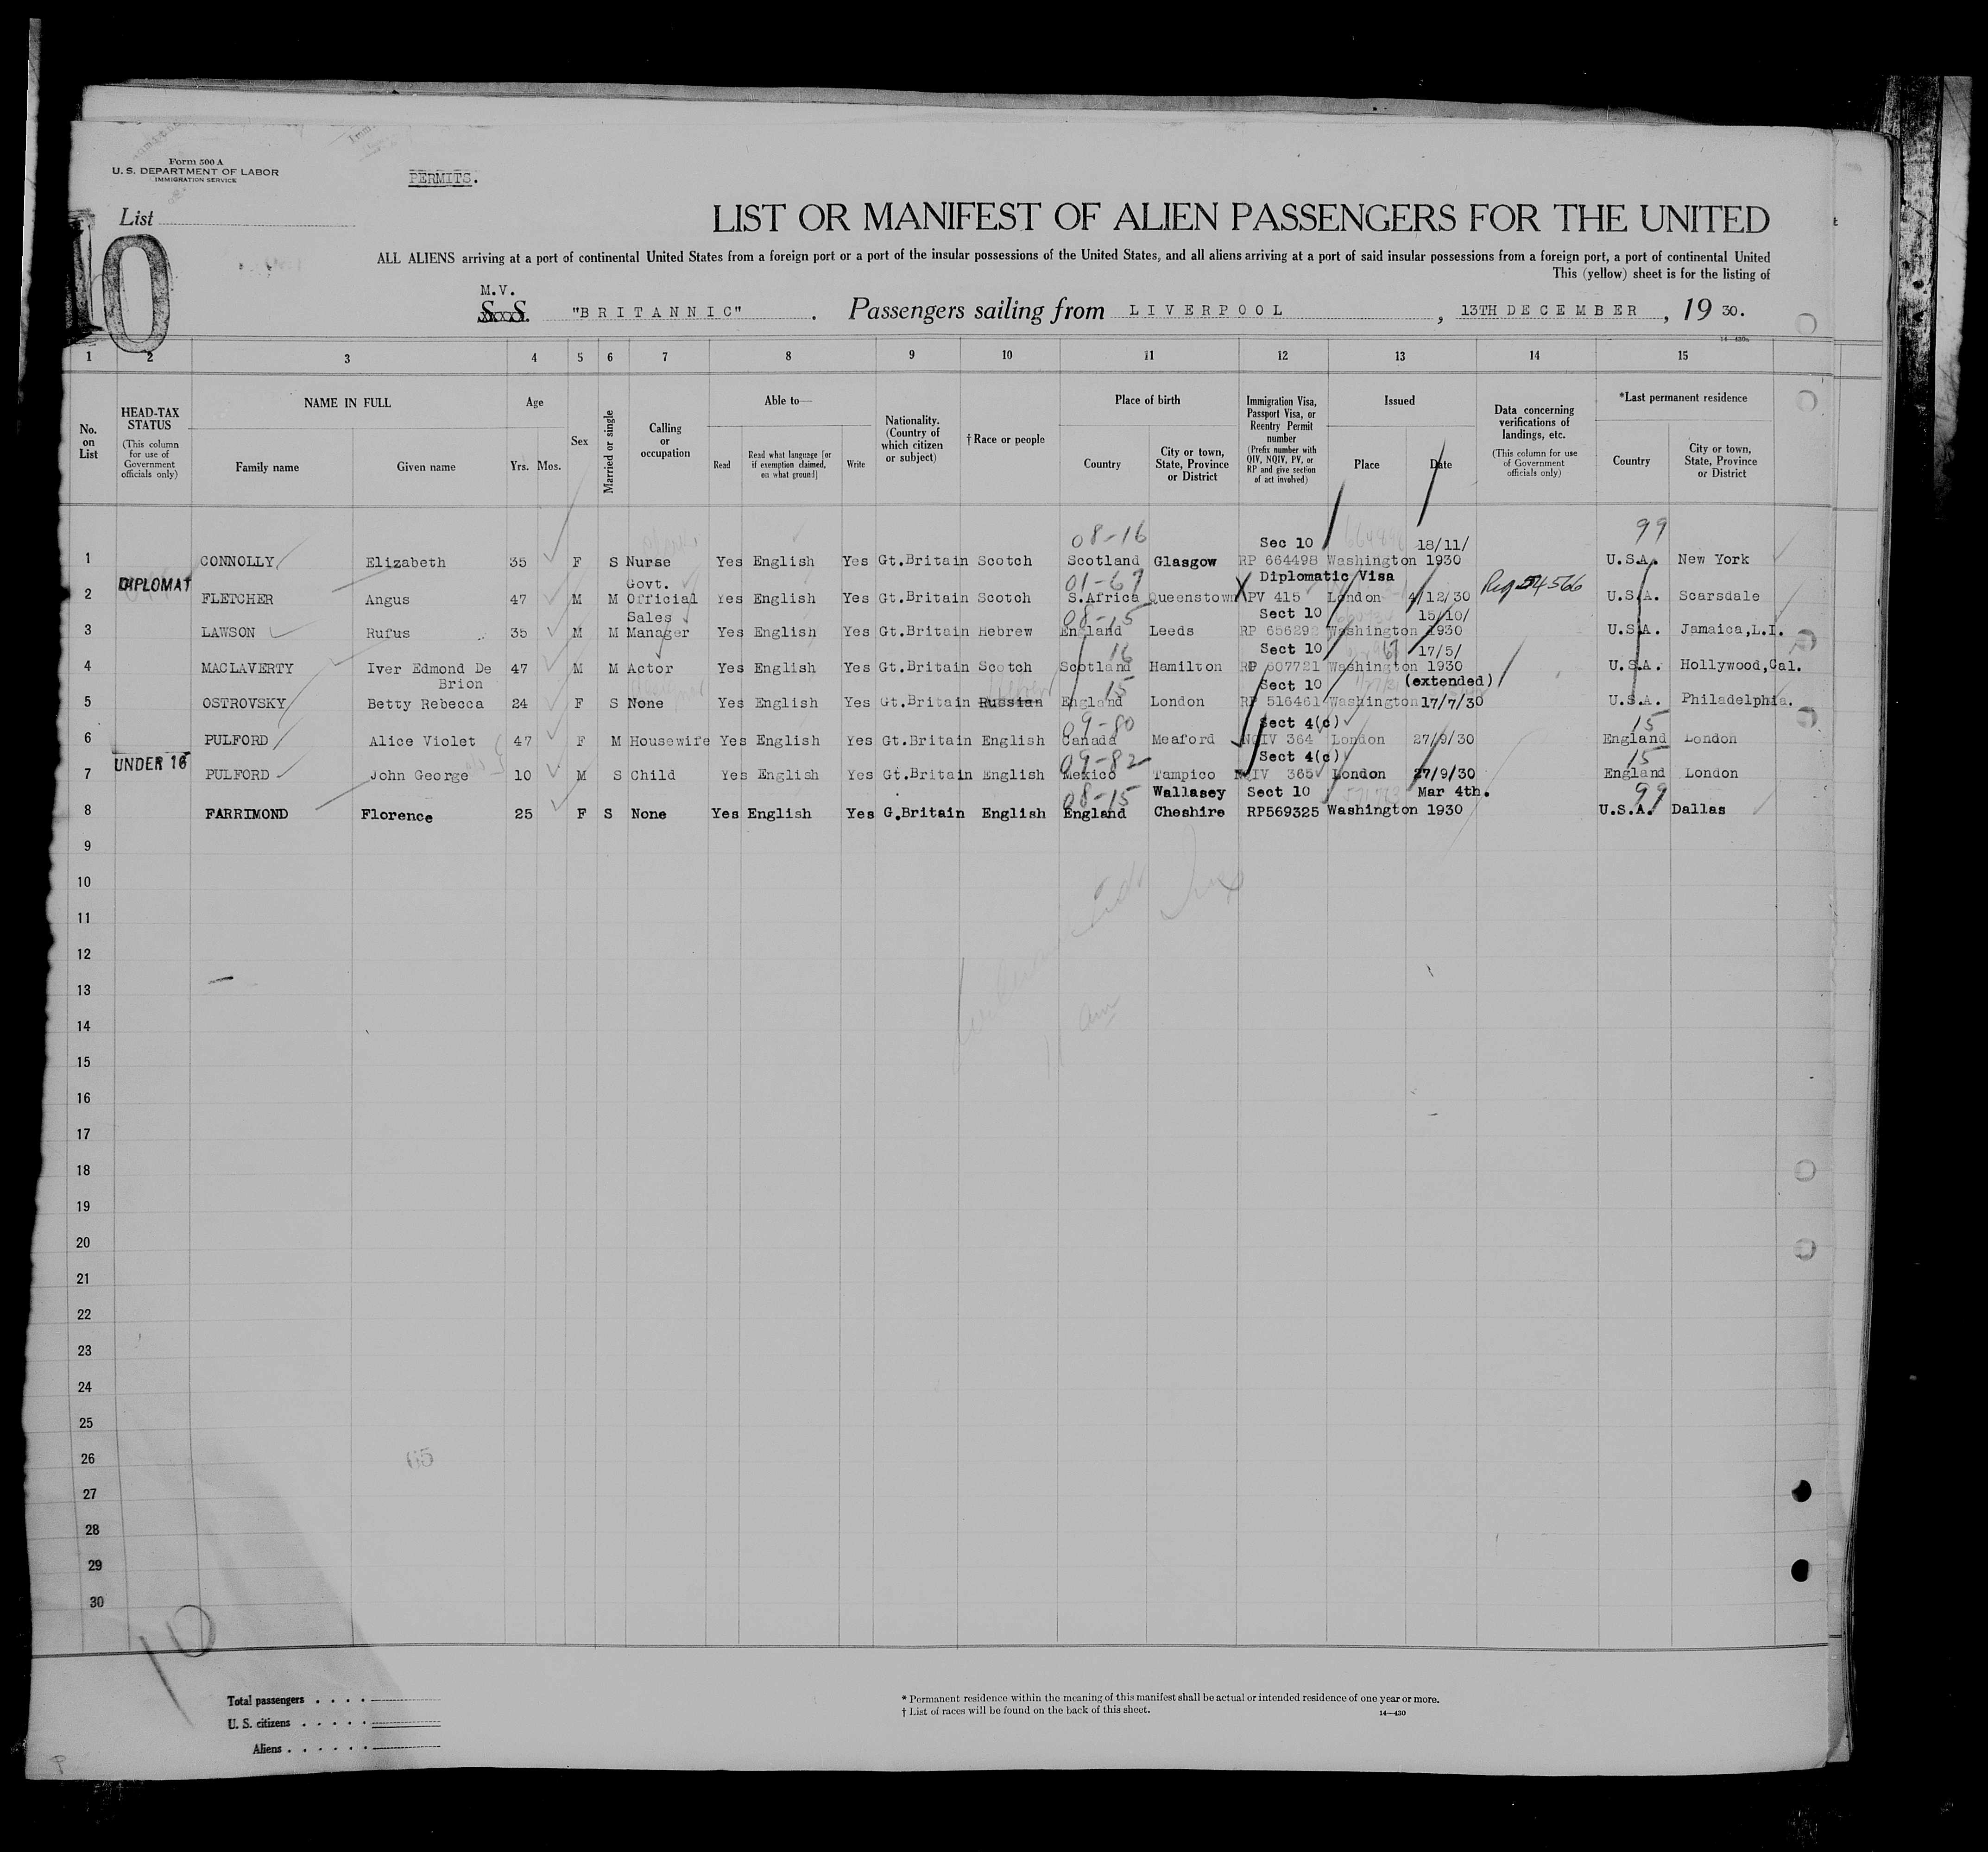 Form 500 A
U. S. DEPARTMENT OF LABOR
IMMIGRATION SERVICE
PERMITS.
List
10
LIST OR MANIFEST OF ALIEN PASSENGERS FOR THE UNITED
ALL ALIENS arriving at a port of continental United States from a foreign port or a port of the insular possessions of the United States, and all aliens arriving at a port of said insular possessions from a foreign port, a port of continental United
This (yellow) sheet is for the listing of
M.V.
S. S. "BRITANNIC". Passengers sailing from LIVERPOOL, 13TH DECEMBER, 19 30.
1 2 3 4 5 6 7 8 9 10 11 12 13 14 15
No. on List
HEAD-TAX STATUS (This column for use of Government officials only)
NAME IN FULL
Family name Given name
Age
Yrs. Mos.
Sex
Married or single
Calling or occupation
Able to—
Read Read what language [or if exemption claimed, on what ground] Write
Nationality. (Country of which citizen or subject)
†Race or people
Place of birth
Country City or town, State, Province or District
Immigration Visa, Passport Visa, or Reentry Permit number (Prefix number with QIV, NQIV, PV, or RP and give section of act involved)
Issued
Place Date
Data concerning verifications of landings, etc. (This column for use of Government officials only)
*Last permanent residence
Country City or town, State, Province or District
08-16 Sec 10 18/11/ 99
1 CONNOLLY Elizabeth 35 F S Nurse Yes English Yes Gt.Britain Scotch Scotland Glasgow RP 664498 Washington 1930 U.S.A. New York
DIPLOMAT Govt. 01-67 Diplomatic Visa
2 FLETCHER Angus 47 M M Official Yes English Yes Gt.Britain Scotch S.Africa Queenstown PV 415 London 4/12/30 U.S.A. Scarsdale
Sales 08-15 Sect 10 15/10/
3 LAWSON Rufus 35 M M Manager Yes English Yes Gt.Britain Hebrew England Leeds RP 656292 Washington 1930 U.S.A. Jamaica,L.I.
16 Sect 10 17/5/
4 MACLAVERTY Iver Edmond De Brion 47 M M Actor Yes English Yes Gt.Britain Scotch Scotland Hamilton RP 607721 Washington 1930 U.S.A. Hollywood,Cal.
15 Sect 10 (extended)
5 OSTROVSKY Betty Rebecca 24 F S None Yes English Yes Gt.Britain Russian England London RP 516461 Washington 17/7/30 U.S.A. Philadelphia.
09-80 Sect 4(c) 15
6 PULFORD Alice Violet 47 F M Housewife Yes English Yes Gt.Britain English Canada Meaford NQIV 364 London 27/9/30 England London
UNDER 16 09-82 Sect 4(c) 15
7 PULFORD John George 10 M S Child Yes English Yes Gt.Britain English Mexico Tampico NQIV 365 London 27/9/30 England London
08-15 Wallasey Sect 10 Mar 4th. 99
8 FARRIMOND Florence 25 F S None Yes English Yes G.Britain English England Cheshire RP569325 Washington 1930 U.S.A. Dallas
9
10
11
12
13
14
15
16
17
18
19
20
21
22
23
24
25
26
65
27
28
29
30
10
Total passengers
U. S. citizens
Aliens
* Permanent residence within the meaning of this manifest shall be actual or intended residence of one year or more.
† List of races will be found on the back of this sheet.
14—430